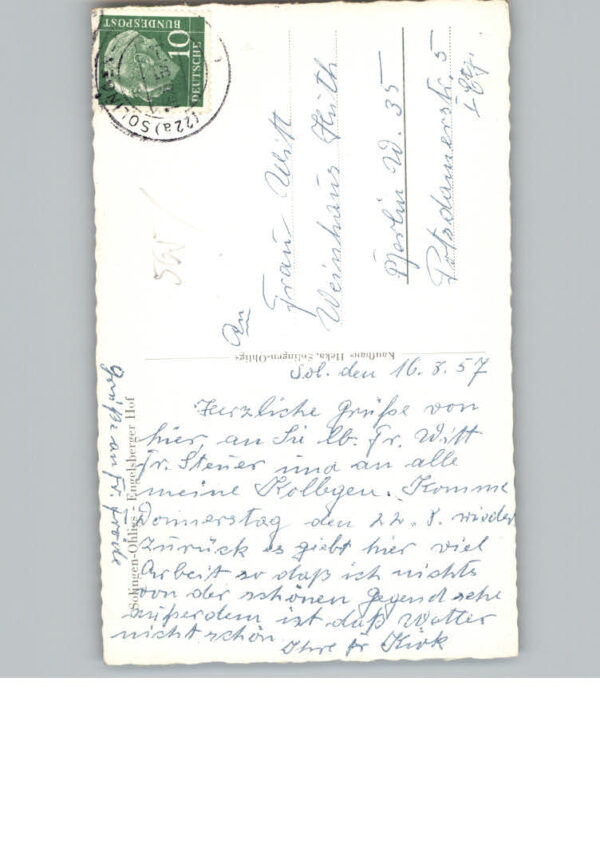 Sol. den 16.8.57
Herzliche Grüße von
hier, an Sie lb. Fr. Witt
Fr. Steuer und an alle
meine Kollegen. Komme
Donnerstag den 22.8. wieder
zurück es giebt hier viel
Arbeit so daß ich nichts
von der schönen Gegend sehe
außerdem ist daß Wetter
nicht schön
Ihre Fr Kirk
Grüße an Fr.
Solingen-Ohligs - Engelsberger Hof
Kaufhaus Heka, Solingen-Ohligs
An
Frau Witt
Weinhaus Huth
Berlin W. 35
Potsdamerstr. 5
DEUTSCHE
BUNDESPOST
10
(22a) SOLINGEN